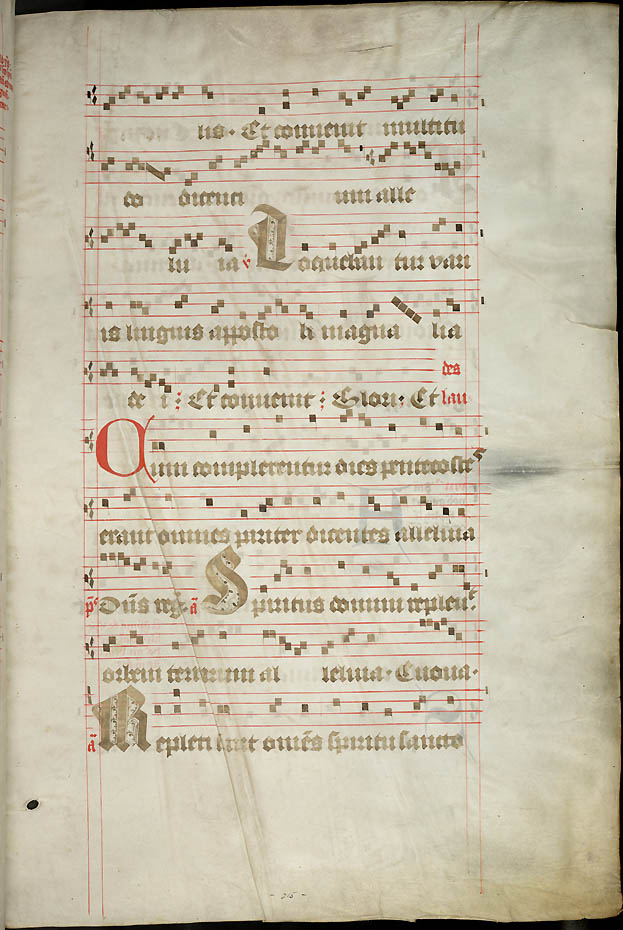 lis · Et convenit multitu
do dicenci um alle
lu ia ℣ Loqueban tur vari
is linguis apposto li magna lia
des
de i : Et convenit : Glori · Et lau
Cum complerentur dies pentecostes
erant omnes pariter dicentes alleluia
ps Dns reg. a Spiritus domini repleu.
orbem terrarum al leluia · Euoua ·
a Repleti sunt omēs spiritu sancto